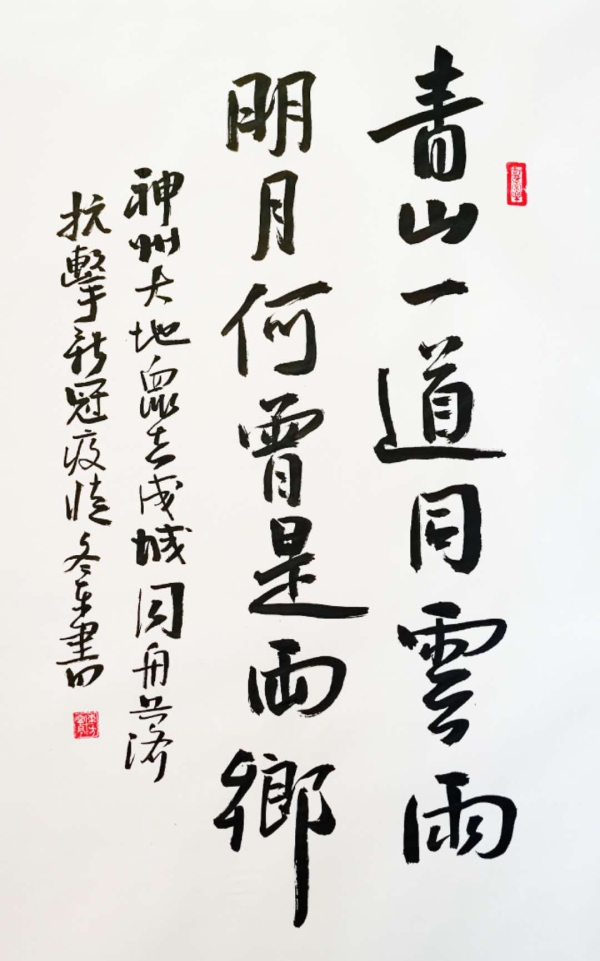 青山一道同雲雨
明月何曾是两鄉
神州大地眾志成城同舟共济
抗擊新冠疫情冬东書